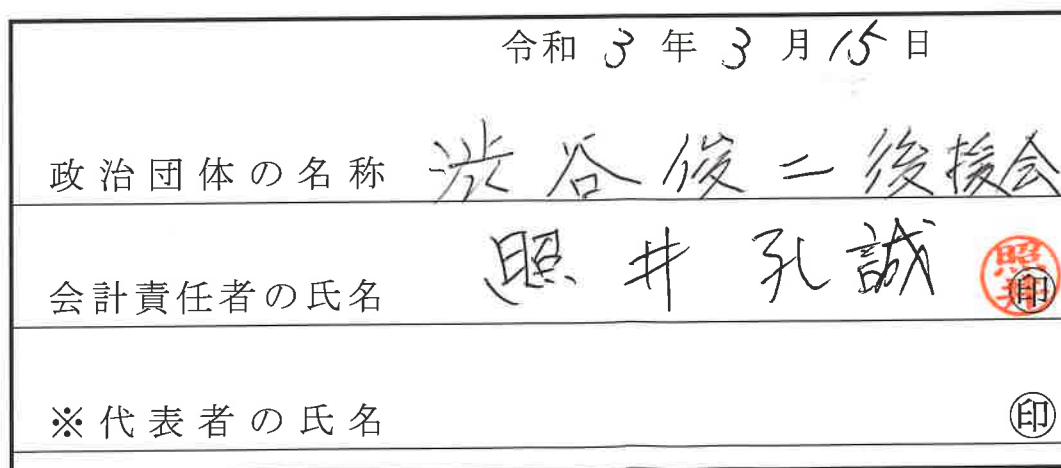 令和 3 年 3 月 15 日
政治団体の名称 渋谷俊二後援会
会計責任者の氏名 照井孔誠 照井 印
※代表者の氏名 印